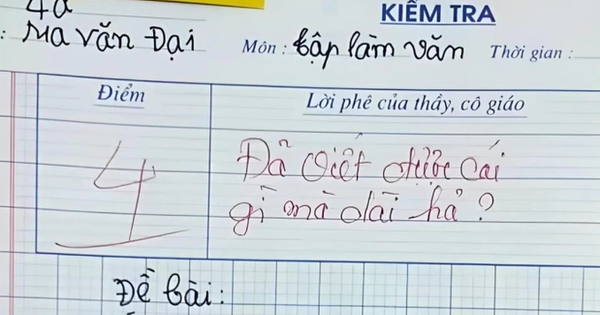 4a
KIỂM TRA
: Ma Văn Đại Môn : tập làm văn Thời gian :
Điểm Lời phê của thầy, cô giáo
4 Đã viết được cái
gì mà dài hả?
Đề bài: